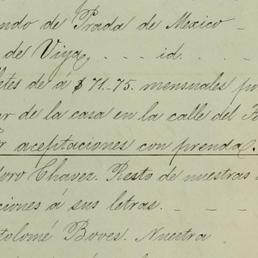 ndo de Prada de Mexico -
de Viya, . - - - id. -
tes de á $ 71..75. mensuales p
ar de la casa en la calle del
aceptaciones con prenda.
oro Chavez. Resto de nuestras
ciones á sus letras. - - -
tolomé Boves. Nuestra